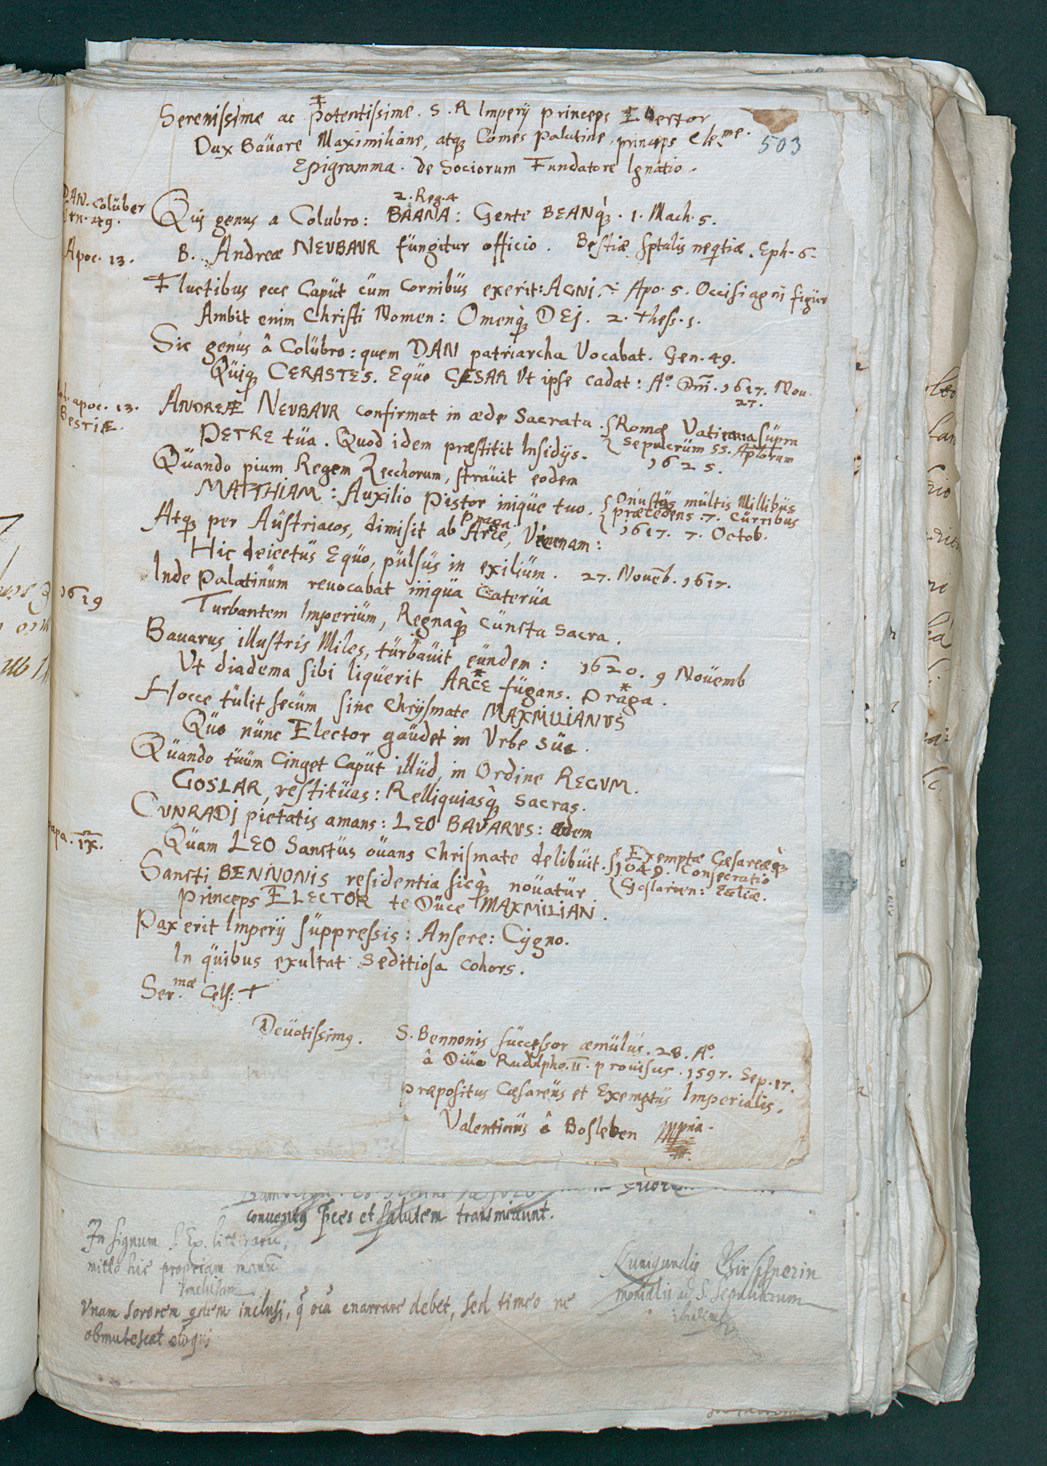 503
Serenissime ac Potentissime. S. R Imperÿ princeps Elector
Dux Bavare Maximiliane, atq3 Comes Palatine, princeps Cle.me.
Epigramma. de Sociorum Fundatore Ignatio.
DAN. Coluber
Gen. 49.
2. Reg. 4
Quis genus a Colubro: BAANA: Gente BEANq3. 1. Mach. 5.
Apoc. 13.
B. Andreæ NEVBAVR fungitur officio. Bestiæ sptalis neqtiæ. Eph. 6.
Fluctibus ecce Caput cum Cornibus exerit: AGNI. Apo. 5. Occisi agni figur
Ambit enim Christi Nomen: Omenq3 DEI. 2. Thess. 1.
Sic genus â Colubro: quem DAN patriarcha Vocabat. Gen. 49.
Quiq3 CERASTES. Equo CESAR Vt ipse cadat: Aº Dm. 1617. Nou.
27.
apoc. 13.
BESTIÆ.
ANDREÆ NEVBAVR confirmat in æde Sacrata. Romæ Vaticana supra
PETRE tua. Quod idem præstitit Insidÿs. Sepulcrum SS. Aptorum
1625.
Quando pium Regem Zecchorum, stravit eodem
MATTHIAM: Auxilio Pistor inique tuo. Onustus multis Millibus
præcedens 7. Curribus
1617. 7. Octob.
Praga
Atq3 per Austriacos, dimisit ab Arce, Viennam:
Hic deiectus Equo, pulsus in exilium. 27. Novēb. 1617.
1619
Inde Palatinum revocabat iniqua Caterua
Turbantem Imperium, Regnaq3 Cuncta Sacra.
Bavarus illustris Miles, turbavit eundem: 1620. 9 Nouemb
Vt diadema sibi liquerit ARCE fugans. Praga.
Hocce tulit secum sine Chrysmate MAXMILIANVS
Quo nunc Elector gaudet in Vrbe Sua.
Quando tuum Cinget Caput illud, in Ordine REGVM.
GOSLAR, restituas: Relliquiasq3 Sacras.
CVNRADI pietatis amans: LEO BAVARVS: idem
papa. IX.
Quam LEO Sanctus ouans Chrismate delibuit. Exemptæ Cæsareæq3
1049. Consecratio
Goslarien: Ecctiæ.
Sancti BENNONIS residentia sicq3 novatur
Princeps ELECTOR te Duce MAXMILIANI.
Pax erit Imperÿ suppressis: Ansere: Cygno.
In quibus exultat Seditiosa Cohors.
Ser.mæ Cels: +
Devotissimg.
S. Bennonis successor æmulus. 28. Aº.
â Divo Rudolpho. II. provisus. 1597. Sep. 17.
Præpositus Cæsareus et Exemptus Imperialis.
Valentinus â Bosleben mpria.
conventg pces et salutem transmittunt.
In signum
mitto hic propriam manu
inclusam
Vnam sororem inclusi, q oia enarrare debet, sed timeo ne
obmutescat
Kunigundis Hirschnerin
monialis ad S. Sepulchrum